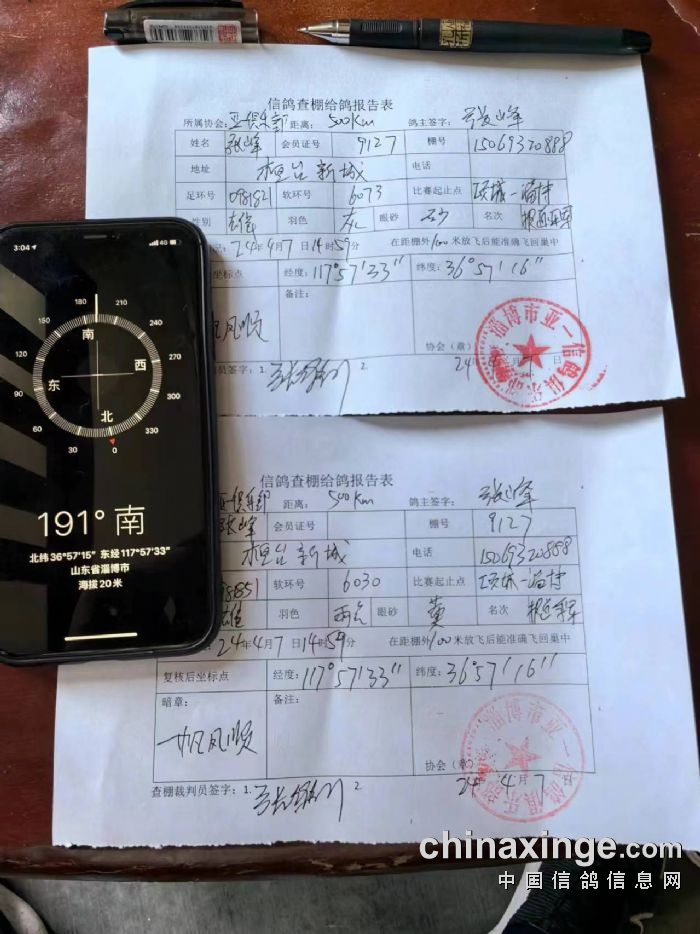 信鸽查棚给鸽报告表
所属协会: 亚一俱乐部 距离: 500Km 鸽主签字: 张峰
姓名 张峰 会员证号 9127 棚号 15069320888
地址 桓台新城 电话
足环号 098521 软环号 6073 比赛起止点 项城—淄博
性别 雄 羽色 灰 眼砂 砂 名次
24年4月7日14时59分 在距棚外100米放飞后能准确飞回巢中
坐标点 经度: 117°57'33" 纬度: 36°57'16"
备注:
帆风顺
协会(章)
24年 月 日
淄博市亚一信鸽俱乐部
员签字: 1. 2
3:04
4G
180 210 240 270 300 330 0 30 60 90 120 150
南
东 西
北
191° 南
北纬 36°57'15" 东经 117°57'33"
山东省淄博市
海拔 20 米
信鸽查棚给鸽报告表
亚一俱乐部 距离: 500Km 鸽主签字: 张峰
张峰 会员证号 棚号 9127
桓台新城 电话 15069320888
098851 软环号 6030 比赛起止点 项城—淄博
雄 羽色 雨点 眼砂 黄 名次
24年4月7日14时59分 在距棚外100米放飞后能准确飞回巢中
复核后坐标点 经度: 117°57'33" 纬度: 36°57'16"
暗章: 备注:
一帆风顺
协会(章)
24年4月7日
淄博市亚一信鸽俱乐部
查棚裁判员签字: 1. 2
chinaxinge.com
中国信鸽信息网